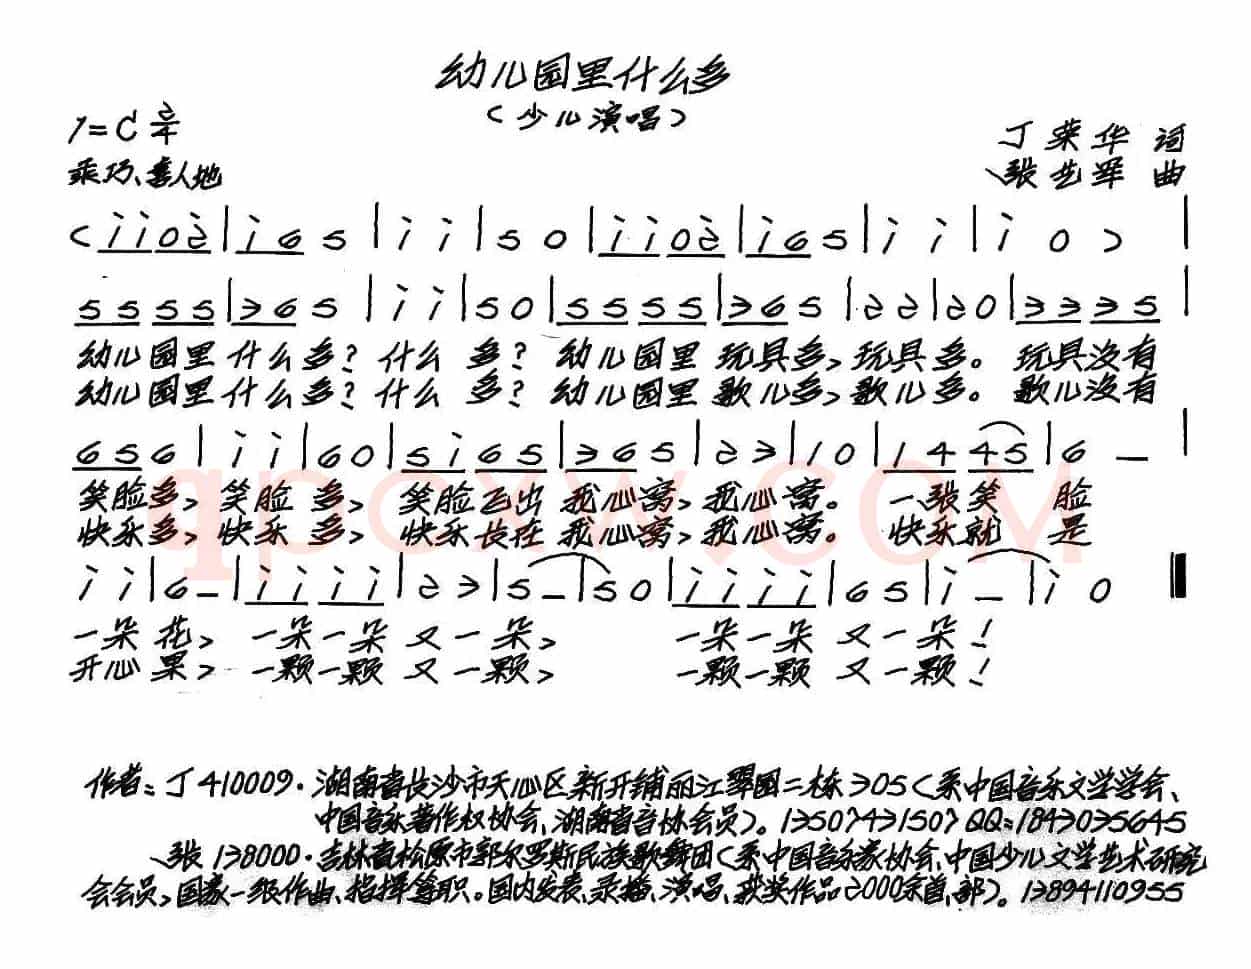 幼儿园里什么多
(少儿演唱)
1=C 2/4
丁荣华 词
乖巧、喜人地
张艺军 曲
(i i 0 2|i 6 5|i i|5 0|i i 0 2|i 6 5|i i|i 0)|
5 5 5 5|3 6 5|i i|5 0|5 5 5 5|3 6 5|2 2|2 0|3 3 3 5|
幼儿园里 什么多? 什么 多? 幼儿园里 玩具多, 玩具 多。 玩具没有
幼儿园里 什么多? 什么 多? 幼儿园里 歌儿多, 歌儿 多。 歌儿没有
6 5 6|i i|6 0|5 i 6 5|3 6 5|2 3|1 0|1 4 4 5|6 —|
笑脸多, 笑脸 多, 笑脸飞出 我心窝, 我心窝。 一张笑 脸
快乐多, 快乐 多, 快乐长在 我心窝, 我心窝。 快乐就 是
i i|6 —|i i i i|2 3|5 —|5 0|i i i i|6 5|i —|i 0
一朵 花, 一朵一朵 又一朵, 一朵一朵 又一朵!
开心 果, 一颗一颗 又一颗, 一颗一颗 又一颗!
qpcxw.COM
作者:丁410009·湖南省长沙市天心区新开铺丽江翠园二栋305(系中国音乐文学学会、
中国音乐著作权协会、湖南省音协会员)。13507431507 QQ:1843035645
张138000·吉林省松原市郭尔罗斯民族歌舞团(系中国音乐家协会、中国少儿文学艺术研究
会会员,国家一级作曲、指挥等职。国内发表、录播、演唱、获奖作品2000余首、部)。13894110955